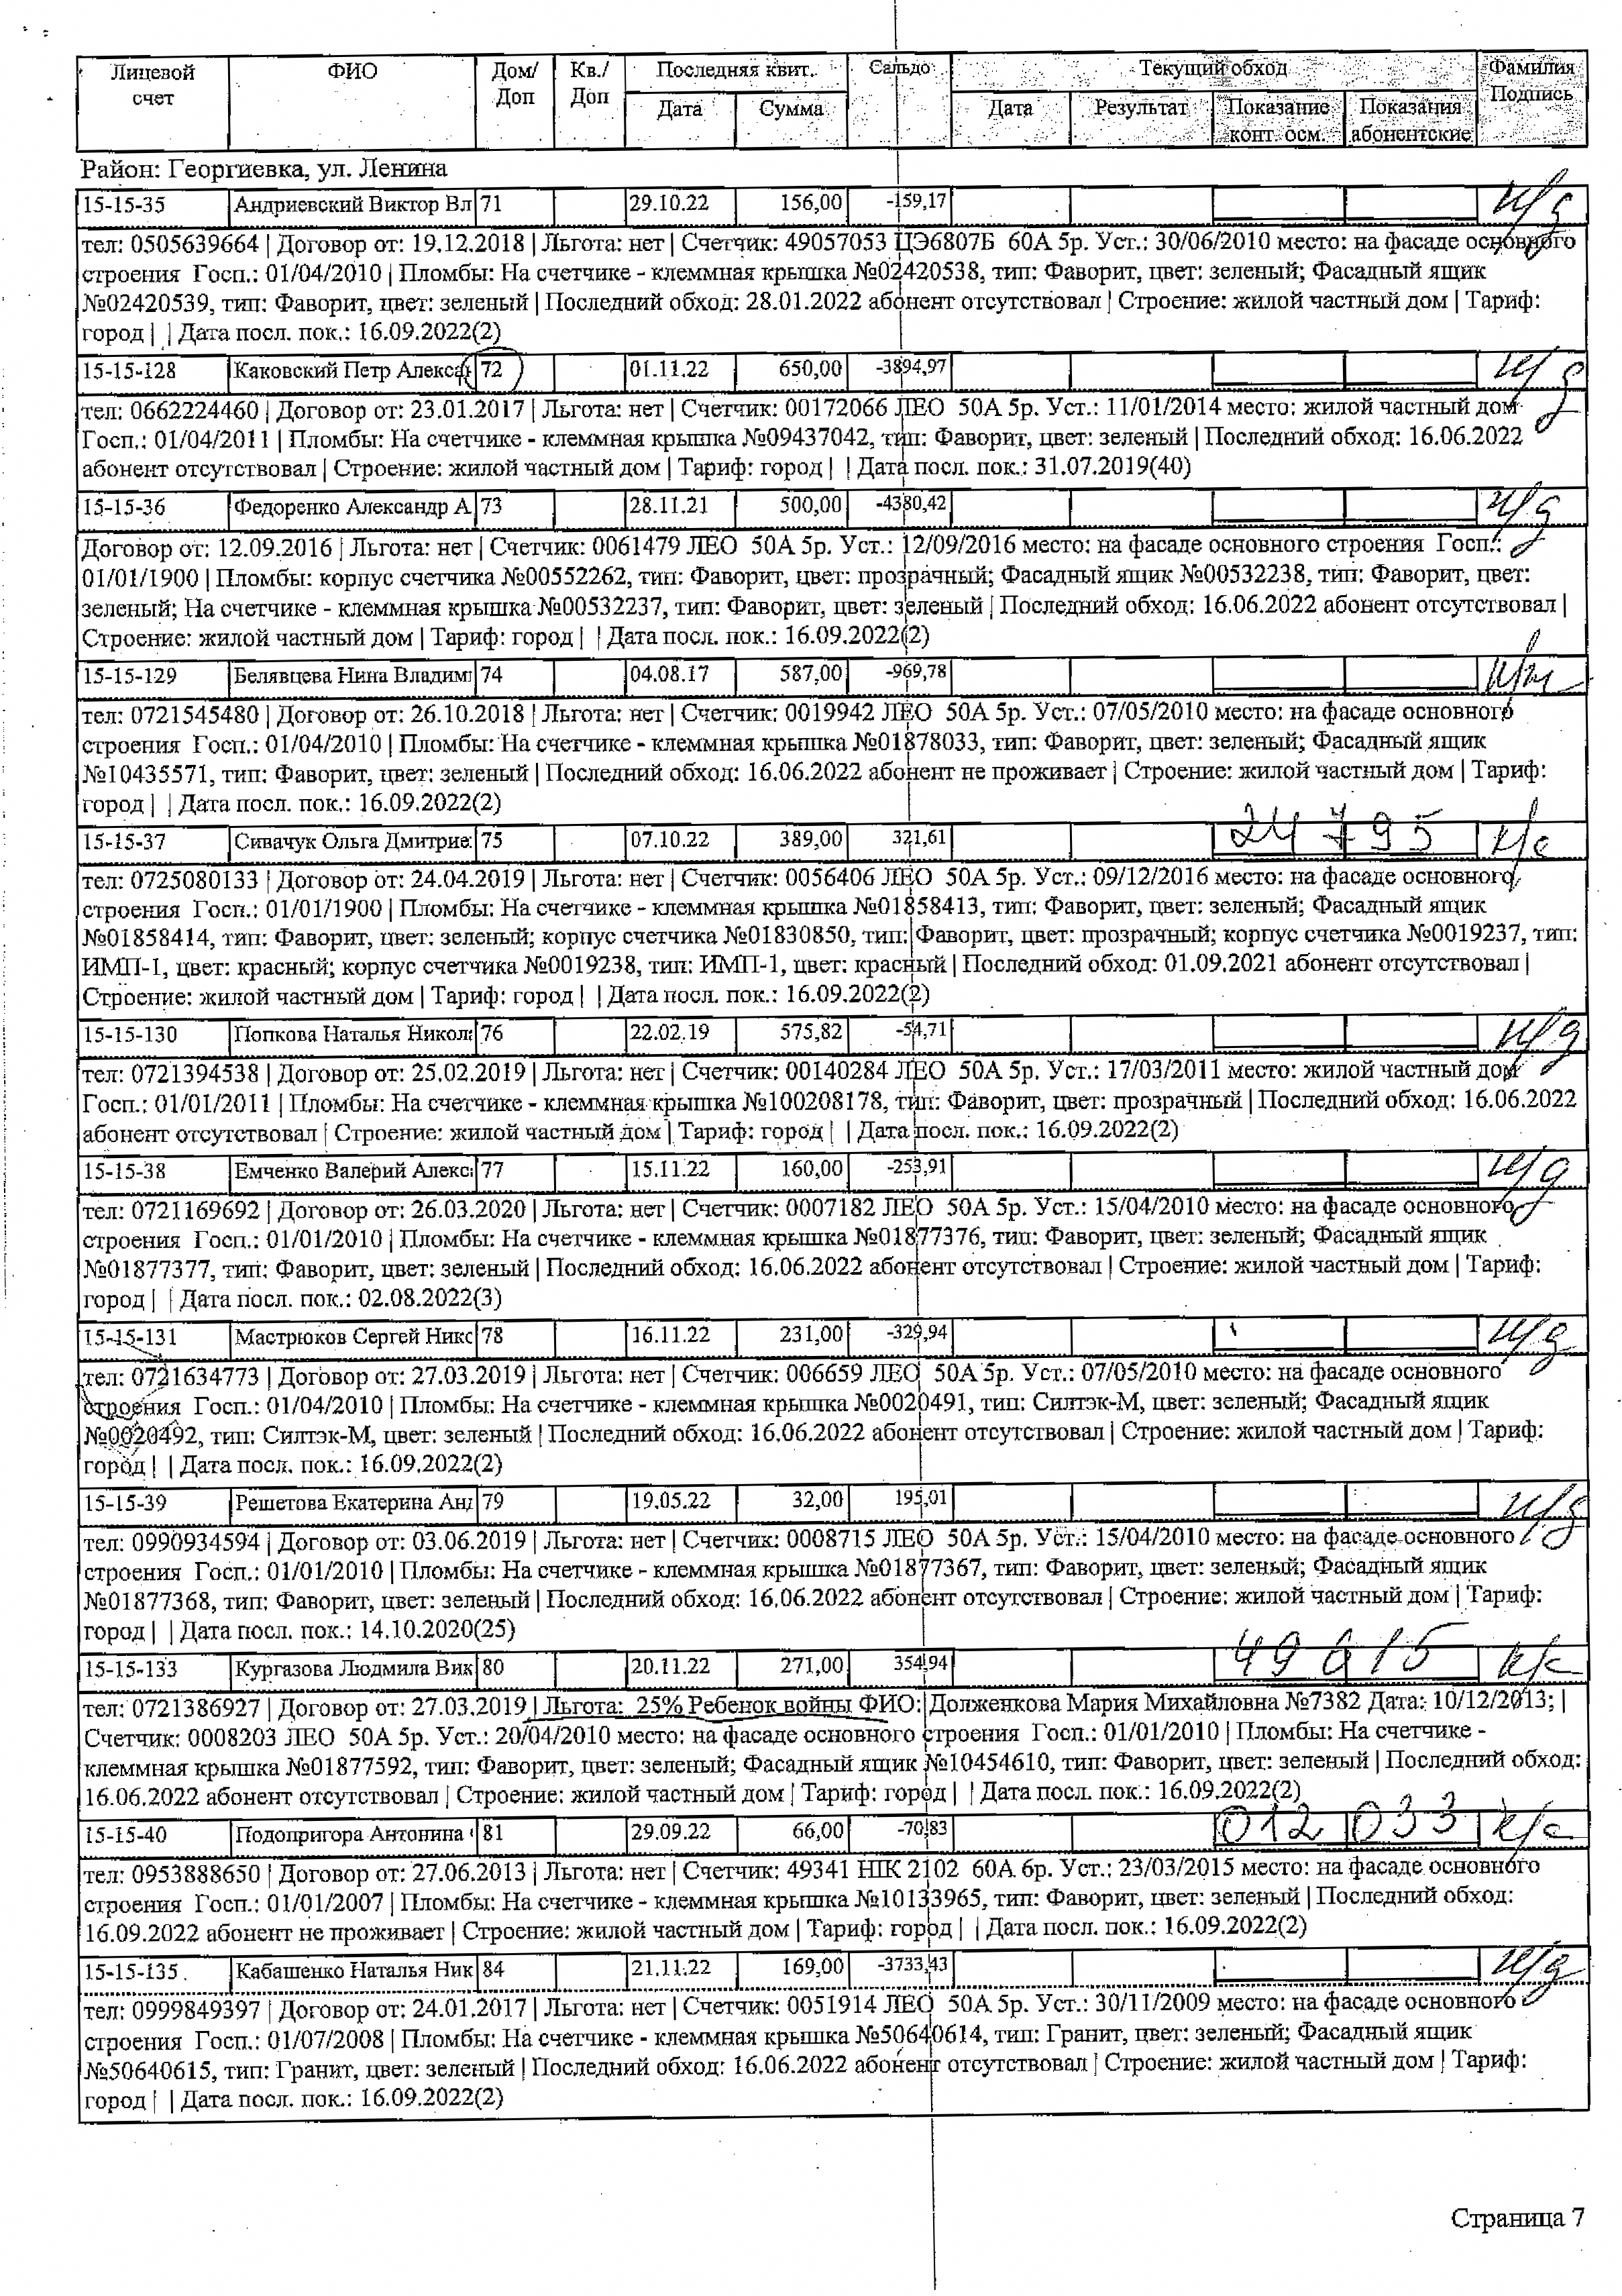 Лицевой счет | ФИО | Дом/ Доп | Кв./ Доп | Последняя квит. | Сальдо | Текущий обход | Фамилия Подпись
Дата | Сумма | Дата | Результат | Показание конт. осм. | Показания абонентские
Район: Георгиевка, ул. Ленина
15-15-35 Андриевский Виктор Вл 71 29.10.22 156,00 -159,17 н/д
тел: 0505639664 | Договор от: 19.12.2018 | Льгота: нет | Счетчик: 49057053 ЦЭ6807Б 60А 5р. Уст.: 30/06/2010 место: на фасаде основного
строения Госп.: 01/04/2010 | Пломбы: На счетчике - клеммная крышка №02420538, тип: Фаворит, цвет: зеленый; Фасадный ящик
№02420539, тип: Фаворит, цвет: зеленый | Последний обход: 28.01.2022 абонент отсутствовал | Строение: жилой частный дом | Тариф:
город | | Дата посл. пок.: 16.09.2022(2)
15-15-128 Каковский Петр Алексан 72 01.11.22 650,00 -3894,97 н/д
тел: 0662224460 | Договор от: 23.01.2017 | Льгота: нет | Счетчик: 00172066 ЛЕО 50А 5р. Уст.: 11/01/2014 место: жилой частный дом
Госп.: 01/04/2011 | Пломбы: На счетчике - клеммная крышка №09437042, тип: Фаворит, цвет: зеленый | Последний обход: 16.06.2022
абонент отсутствовал | Строение: жилой частный дом | Тариф: город | | Дата посл. пок.: 31.07.2019(40)
15-15-36 Федоренко Александр А 73 28.11.21 500,00 -4380,42 н/д
Договор от: 12.09.2016 | Льгота: нет | Счетчик: 0061479 ЛЕО 50А 5р. Уст.: 12/09/2016 место: на фасаде основного строения Госп.:
01/01/1900 | Пломбы: корпус счетчика №00552262, тип: Фаворит, цвет: прозрачный; Фасадный ящик №00532238, тип: Фаворит, цвет:
зеленый; На счетчике - клеммная крышка №00532237, тип: Фаворит, цвет: зеленый | Последний обход: 16.06.2022 абонент отсутствовал |
Строение: жилой частный дом | Тариф: город | | Дата посл. пок.: 16.09.2022(2)
15-15-129 Белявцева Нина Владим 74 04.08.17 587,00 -969,78
тел: 0721545480 | Договор от: 26.10.2018 | Льгота: нет | Счетчик: 0019942 ЛЕО 50А 5р. Уст.: 07/05/2010 место: на фасаде основного
строения Госп.: 01/04/2010 | Пломбы: На счетчике - клеммная крышка №01878033, тип: Фаворит, цвет: зеленый; Фасадный ящик
№10435571, тип: Фаворит, цвет: зеленый | Последний обход: 16.06.2022 абонент не проживает | Строение: жилой частный дом | Тариф:
город | | Дата посл. пок.: 16.09.2022(2)
15-15-37 Сивачук Ольга Дмитрие 75 07.10.22 389,00 321,61 24795 к/с
тел: 0725080133 | Договор от: 24.04.2019 | Льгота: нет | Счетчик: 0056406 ЛЕО 50А 5р. Уст.: 09/12/2016 место: на фасаде основного
строения Госп.: 01/01/1900 | Пломбы: На счетчике - клеммная крышка №01858413, тип: Фаворит, цвет: зеленый; Фасадный ящик
№01858414, тип: Фаворит, цвет: зеленый; корпус счетчика №01830850, тип: Фаворит, цвет: прозрачный; корпус счетчика №0019237, тип:
ИМП-1, цвет: красный; корпус счетчика №0019238, тип: ИМП-1, цвет: красный | Последний обход: 01.09.2021 абонент отсутствовал |
Строение: жилой частный дом | Тариф: город | | Дата посл. пок.: 16.09.2022(2)
15-15-130 Попкова Наталья Никол 76 22.02.19 575,82 -54,71 н/д
тел: 0721394538 | Договор от: 25.02.2019 | Льгота: нет | Счетчик: 00140284 ЛЕО 50А 5р. Уст.: 17/03/2011 место: жилой частный дом
Госп.: 01/01/2011 | Пломбы: На счетчике - клеммная крышка №100208178, тип: Фаворит, цвет: прозрачный | Последний обход: 16.06.2022
абонент отсутствовал | Строение: жилой частный дом | Тариф: город | | Дата посл. пок.: 16.09.2022(2)
15-15-38 Емченко Валерий Алекс 77 15.11.22 160,00 -253,91 н/д
тел: 0721169692 | Договор от: 26.03.2020 | Льгота: нет | Счетчик: 0007182 ЛЕО 50А 5р. Уст.: 15/04/2010 место: на фасаде основного
строения Госп.: 01/01/2010 | Пломбы: На счетчике - клеммная крышка №01877376, тип: Фаворит, цвет: зеленый; Фасадный ящик
№01877377, тип: Фаворит, цвет: зеленый | Последний обход: 16.06.2022 абонент отсутствовал | Строение: жилой частный дом | Тариф:
город | | Дата посл. пок.: 02.08.2022(3)
15-15-131 Мастрюков Сергей Никс 78 16.11.22 231,00 -329,94 н/д
тел: 0721634773 | Договор от: 27.03.2019 | Льгота: нет | Счетчик: 006659 ЛЕО 50А 5р. Уст.: 07/05/2010 место: на фасаде основного
строения Госп.: 01/04/2010 | Пломбы: На счетчике - клеммная крышка №0020491, тип: Силтэк-М, цвет: зеленый; Фасадный ящик
№0020492, тип: Силтэк-М, цвет: зеленый | Последний обход: 16.06.2022 абонент отсутствовал | Строение: жилой частный дом | Тариф:
город | | Дата посл. пок.: 16.09.2022(2)
15-15-39 Решетова Екатерина Анд 79 19.05.22 32,00 195,01 н/д
тел: 0990934594 | Договор от: 03.06.2019 | Льгота: нет | Счетчик: 0008715 ЛЕО 50А 5р. Уст.: 15/04/2010 место: на фасаде основного
строения Госп.: 01/01/2010 | Пломбы: На счетчике - клеммная крышка №01877367, тип: Фаворит, цвет: зеленый; Фасадный ящик
№01877368, тип: Фаворит, цвет: зеленый | Последний обход: 16.06.2022 абонент отсутствовал | Строение: жилой частный дом | Тариф:
город | | Дата посл. пок.: 14.10.2020(25)
15-15-133 Кургазова Людмила Вик 80 20.11.22 271,00 354,94 49615 к/с
тел: 0721386927 | Договор от: 27.03.2019 | Льгота: 25% Ребенок войны ФИО: Долженкова Мария Михайловна №7382 Дата: 10/12/2013; |
Счетчик: 0008203 ЛЕО 50А 5р. Уст.: 20/04/2010 место: на фасаде основного строения Госп.: 01/01/2010 | Пломбы: На счетчике -
клеммная крышка №01877592, тип: Фаворит, цвет: зеленый; Фасадный ящик №10454610, тип: Фаворит, цвет: зеленый | Последний обход:
16.06.2022 абонент отсутствовал | Строение: жилой частный дом | Тариф: город | | Дата посл. пок.: 16.09.2022(2)
15-15-40 Подопригора Антонина 81 29.09.22 66,00 -70,83 012033 к/с
тел: 0953888650 | Договор от: 27.06.2013 | Льгота: нет | Счетчик: 49341 НІК 2102 60А 6р. Уст.: 23/03/2015 место: на фасаде основного
строения Госп.: 01/01/2007 | Пломбы: На счетчике - клеммная крышка №10133965, тип: Фаворит, цвет: зеленый | Последний обход:
16.09.2022 абонент не проживает | Строение: жилой частный дом | Тариф: город | | Дата посл. пок.: 16.09.2022(2)
15-15-135 Кабашенко Наталья Ник 84 21.11.22 169,00 -3733,43 н/д
тел: 0999849397 | Договор от: 24.01.2017 | Льгота: нет | Счетчик: 0051914 ЛЕО 50А 5р. Уст.: 30/11/2009 место: на фасаде основного
строения Госп.: 01/07/2008 | Пломбы: На счетчике - клеммная крышка №50640614, тип: Гранит, цвет: зеленый; Фасадный ящик
№50640615, тип: Гранит, цвет: зеленый | Последний обход: 16.06.2022 абонент отсутствовал | Строение: жилой частный дом | Тариф:
город | | Дата посл. пок.: 16.09.2022(2)
Страница 7